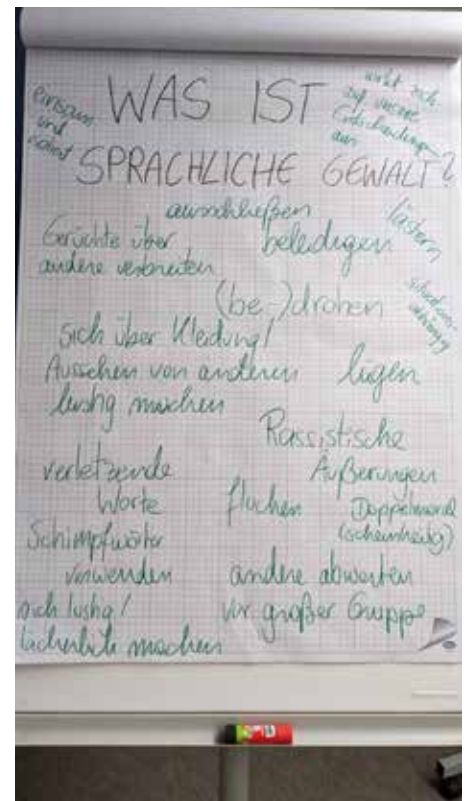 WAS IST
SPRACHLICHE GEWALT?
einsam
und
wirkt sich
auf unsere
Entscheidungen
aus
ausschließen
lästern
Gerüchte über
andere verbreiten
beleidigen
(be-)drohen
sich über Kleidung/
Aussehen von anderen
lustig machen
lügen
Rassistische
Äußerungen
verletzende
Worte
fluchen
Doppelmoral
(scheinheilig)
Schimpfwörter
verwenden
andere abwerten
vor großer Gruppe
sich lustig/
lächerlich machen